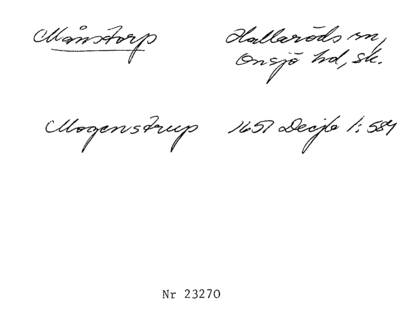 Månstorp Hallaröds sn,
Onsjö hd, sk.
Mogenstrup 1657 Decjb 1:584
Nr 23270